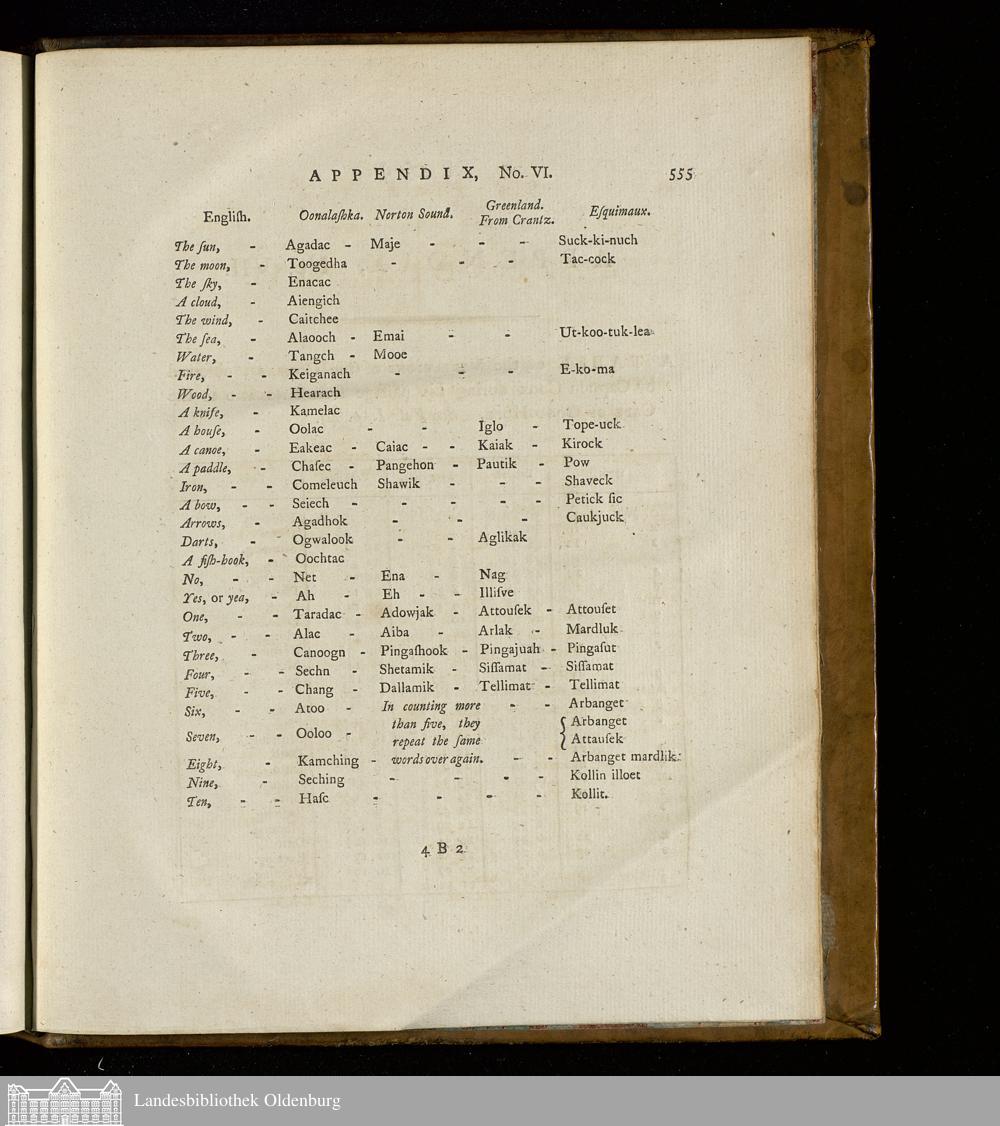 APPENDIX, No. VI. 555
Engliſh. Oonalaſhka. Norton Sound. Greenland. From Crantz. Eſquimaux.
The ſun, - Agadac - Maje - - - Suck-ki-nuch
The moon, - Toogedha - - - Tac-cock
The ſky, - Enacac
A cloud, - Aiengich
The wind, - Caitchee
The ſea, - Alaooch - Emai - - Ut-koo-tuk-lea
Water, - Tangch - Mooe
Fire, - - Keiganach - - - E-ko-ma
Wood, - - Hearach
A knife, - Kamelac
A houſe, - Oolac - - Iglo - Tope-uck
A canoe, - Eakeac - Caiac - - Kaiak - Kirock
A paddle, - Chaſec - Pangehon - Pautik - Pow
Iron, - - Comeleuch Shawik - - - Shaveck
A bow, - - Seiech - - - - - Petick ſic
Arrows, - Agadhok - - - Caukjuck
Darts, - Ogwalook - - Aglikak
A fiſh-hook, - Oochtac
No, - - Net - Ena - Nag
Yes, or yea, - Ah - Eh - - Illiſve
One, - - Taradac - Adowjak - Attouſek - Attouſet
Two, - - Alac - Aiba - Arlak - Mardluk
Three, - Canoogn - Pingaſhook - Pingajuah - Pingaſut
Four, - - Sechn - Shetamik - Siſſamat - Siſſamat
Five, - - Chang - Dallamik - Tellimat - Tellimat
Six, - - Atoo - In counting more - - Arbanget
than five, they { Arbanget
Seven, - - Ooloo - repeat the ſame { Attauſek
Eight, - Kamching - words over again. - - Arbanget mardlik
Nine, - Seching - - - - Kollin illoet
Ten, - - Haſc - - - - Kollit.
4 B 2
Landesbibliothek Oldenburg